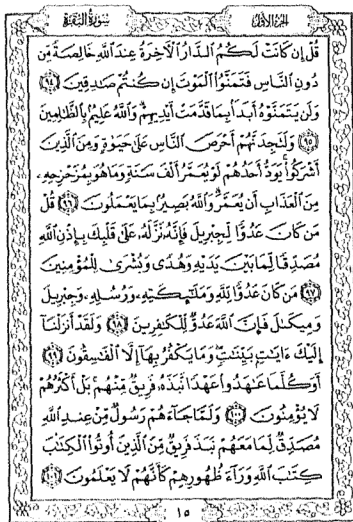 سورة البقرة
الجزء الأول
قُلْ إِن كَانَتْ لَكُمُ الدَّارُ الْآخِرَةُ عِندَ اللَّهِ خَالِصَةً مِّن
دُونِ النَّاسِ فَتَمَنَّوُا الْمَوْتَ إِن كُنتُمْ صَادِقِينَ ﴿٩٤﴾
وَلَن يَتَمَنَّوْهُ أَبَدًا بِمَا قَدَّمَتْ أَيْدِيهِمْ وَاللَّهُ عَلِيمٌ بِالظَّالِمِينَ
﴿٩٥﴾ وَلَتَجِدَنَّهُمْ أَحْرَصَ النَّاسِ عَلَىٰ حَيَوٰةٍ وَمِنَ الَّذِينَ
أَشْرَكُوا يَوَدُّ أَحَدُهُمْ لَوْ يُعَمَّرُ أَلْفَ سَنَةٍ وَمَا هُوَ بِمُزَحْزِحِهِ
مِنَ الْعَذَابِ أَن يُعَمَّرَ وَاللَّهُ بَصِيرٌ بِمَا يَعْمَلُونَ ﴿٩٦﴾ قُلْ
مَن كَانَ عَدُوًّا لِّجِبْرِيلَ فَإِنَّهُ نَزَّلَهُ عَلَىٰ قَلْبِكَ بِإِذْنِ اللَّهِ
مُصَدِّقًا لِّمَا بَيْنَ يَدَيْهِ وَهُدًى وَبُشْرَىٰ لِلْمُؤْمِنِينَ
﴿٩٧﴾ مَن كَانَ عَدُوًّا لِّلَّهِ وَمَلَٰئِكَتِهِ وَرُسُلِهِ وَجِبْرِيلَ
وَمِيكَٰلَ فَإِنَّ اللَّهَ عَدُوٌّ لِّلْكَافِرِينَ ﴿٩٨﴾ وَلَقَدْ أَنزَلْنَا
إِلَيْكَ ءَايَٰتٍ بَيِّنَٰتٍ وَمَا يَكْفُرُ بِهَا إِلَّا الْفَٰسِقُونَ ﴿٩٩﴾
أَوَكُلَّمَا عَٰهَدُوا عَهْدًا نَّبَذَهُ فَرِيقٌ مِّنْهُم بَلْ أَكْثَرُهُمْ
لَا يُؤْمِنُونَ ﴿١٠٠﴾ وَلَمَّا جَاءَهُمْ رَسُولٌ مِّنْ عِندِ اللَّهِ
مُصَدِّقٌ لِّمَا مَعَهُمْ نَبَذَ فَرِيقٌ مِّنَ الَّذِينَ أُوتُوا الْكِتَٰبَ
كِتَٰبَ اللَّهِ وَرَاءَ ظُهُورِهِمْ كَأَنَّهُمْ لَا يَعْلَمُونَ ﴿١٠١﴾
١٥